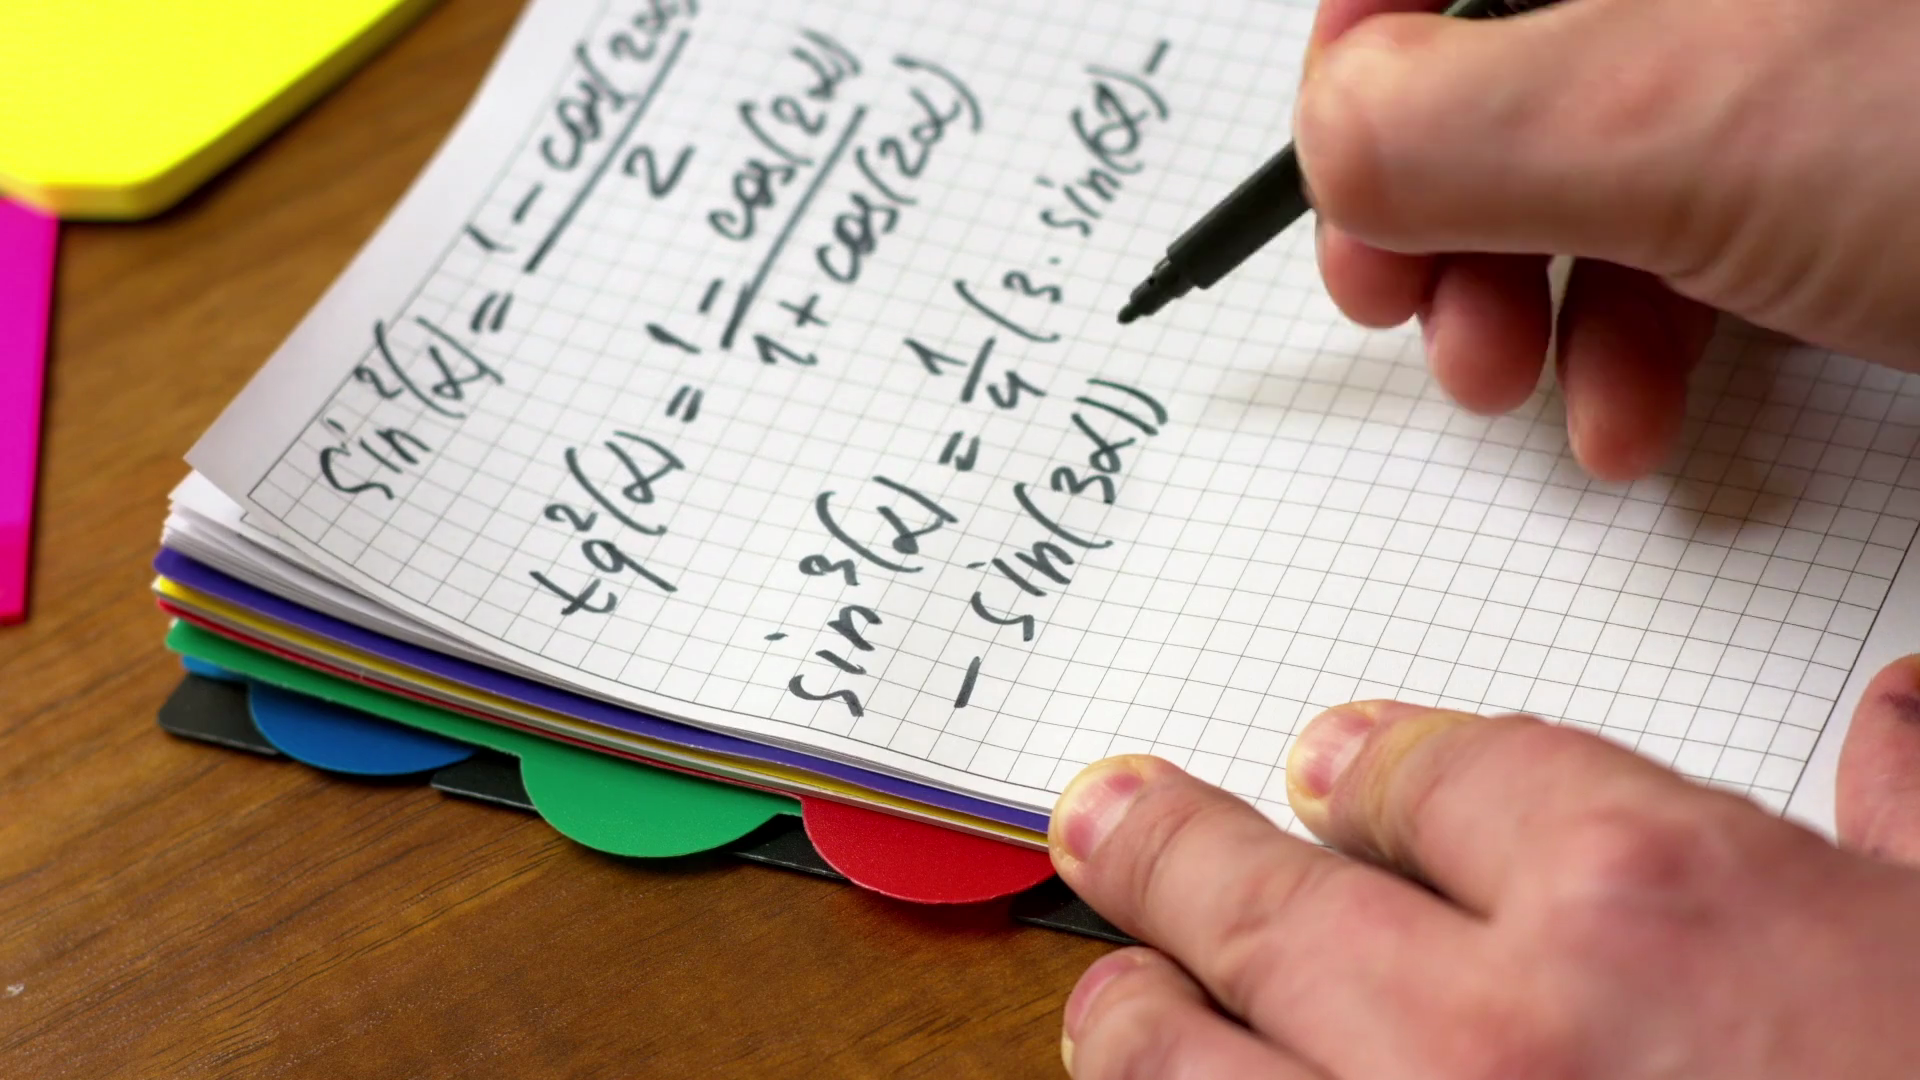 sin²(α) = (1 - cos(2α)) / 2
tg²(α) = (1 - cos(2α)) / (1 + cos(2α))
sin³(α) = 1/4 (3 · sin(α) -
- sin(3α))